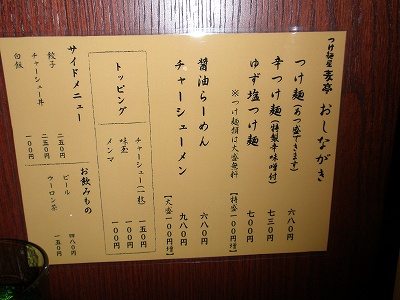 つけ麺屋 麦亭 おしながき
つけ麺(あつ盛できます) 六八〇円
辛つけ麺(特製辛味噌付) 七三〇円
ゆず塩つけ麺 七〇〇円
※つけ麺類は大盛無料 【特盛 一〇〇円増】
醤油らーめん 六八〇円
チャーシューメン 九八〇円
【大盛 一〇〇円増】
トッピング
チャーシュー(一枚) 一五〇円
味玉 一〇〇円
メンマ 一〇〇円
サイドメニュー
餃子 二五〇円
チャーシュー丼 二五〇円
白飯 一〇〇円
お飲みもの
ビール 四八〇円
ウーロン茶 一五〇円